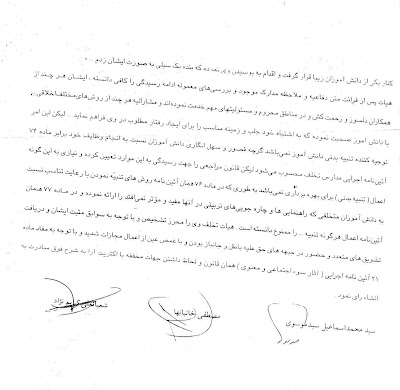 کنار یکی از دانش آموزان زیبا قرار گرفت و اقدام به بوسیدن وی نموده که بنده یک سیلی به صورت ایشان زدم . »
هیات پس از قرائت متن دفاعیه و ملاحظه مدارک موجود و بررسی‌های معموله ادامه رسیدگی را کافی دانسته . ایشان هر چند از
همکاران دلسوز و زحمت کش و در مناطق محروم و مسئولیتهای مهم خدمت نموده‌اند و مشارالیه هر چند از روش‌های مختلف اخلاقی
با دانش آموز صحبت نموده که به اشتباه خود جلب و زمینه مناسب را برای ایجاد رفتار مطلوب در وی فراهم نماید . لیکن این امر
توجیه کننده تنبیه بدنی دانش آموز نمی‌باشد گرچه قصور و سهل انگاری دانش آموزان نسبت به انجام وظایف خود برابر ماده ۷۴
آئین‌نامه اجرایی مدارس تخلف محسوب می‌شود لیکن قانون مراجعی را جهت رسیدگی به این موارد تعیین کرده و نیازی به این گونه
اعمال ( تنبیه بدنی ) برای بهره برداری نمی‌باشد به طوری که در ماده ۷۶ همان آئین نامه روش‌های تنبیه نمودن با رعایت تناسب نسبت
به دانش آموزان متخلفی که راهنمایی ها و چاره جویی‌های تربیتی در آنها مفید و مؤثر نمی‌افتد را ارائه نموده و در ماده ۷۷ همان
آئین‌نامه اعمال هرگونه تنبیه .. را ممنوع دانسته است . هیات تخلف وی را محرز تشخیص و با توجه به سوابق مثبت ایشان و دریافت
تشویق‌های متعدد و حضور در جبهه های حق علیه باطل و جانباز بودن و با غمض عین از اعمال مجازات شدید و با توجه به مفاد ماده
۲۱ آئین نامه اجرایی ( آثار سوء اجتماعی و معنوی ) همان قانون و لحاظ داشتن جهات مخففه با اکثریت آرا به شرح فوق مبادرت به
انشاء رای نمود .
سید محمداسماعیل سیدموسوی مصطفی